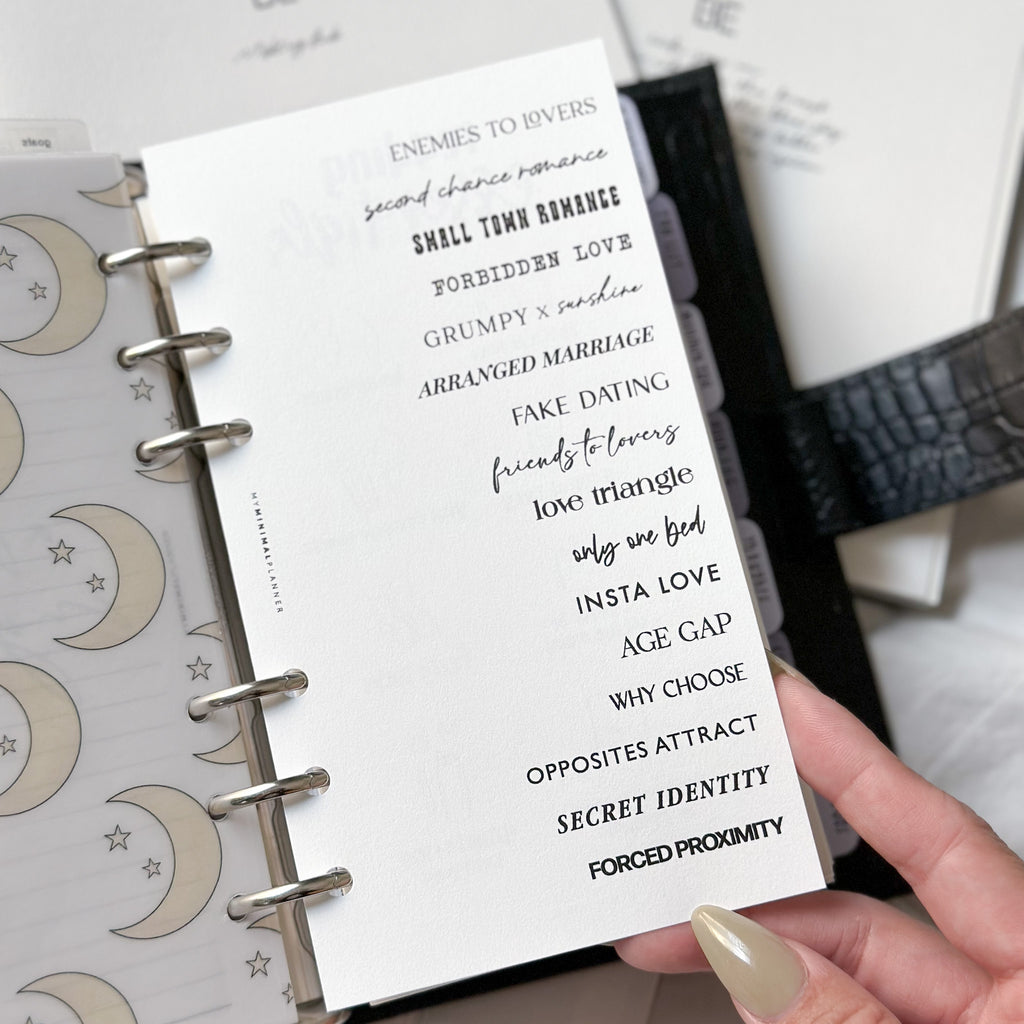 ENEMIES TO LOVERS
second chance romance
SMALL TOWN ROMANCE
FORBIDDEN LOVE
GRUMPY x sunshine
ARRANGED MARRIAGE
FAKE DATING
friends to lovers
love triangle
only one bed
INSTA LOVE
AGE GAP
WHY CHOOSE
OPPOSITES ATTRACT
SECRET IDENTITY
FORCED PROXIMITY
MYMINIMALPLANNER
goals
BE